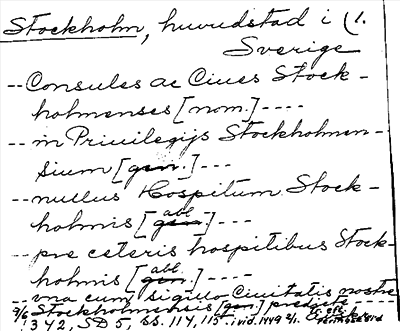 Stockholm, huvudstad i
Sverige
-- Consules ac Ciues Stock-
holmenses [nom.] ----
-- in Priuilegijs Stockholmen-
sium [gen.] ---
-- nullus Hospitum Stock-
holmis [abl.] ---
-- pre ceteris hospitibus Stock-
holmis [abl.] ----
-- vna cum sigillo Ciuitatis nostre
Stockholmensis [gen.] predicte
1342, SD 5, ss. 114, 115.